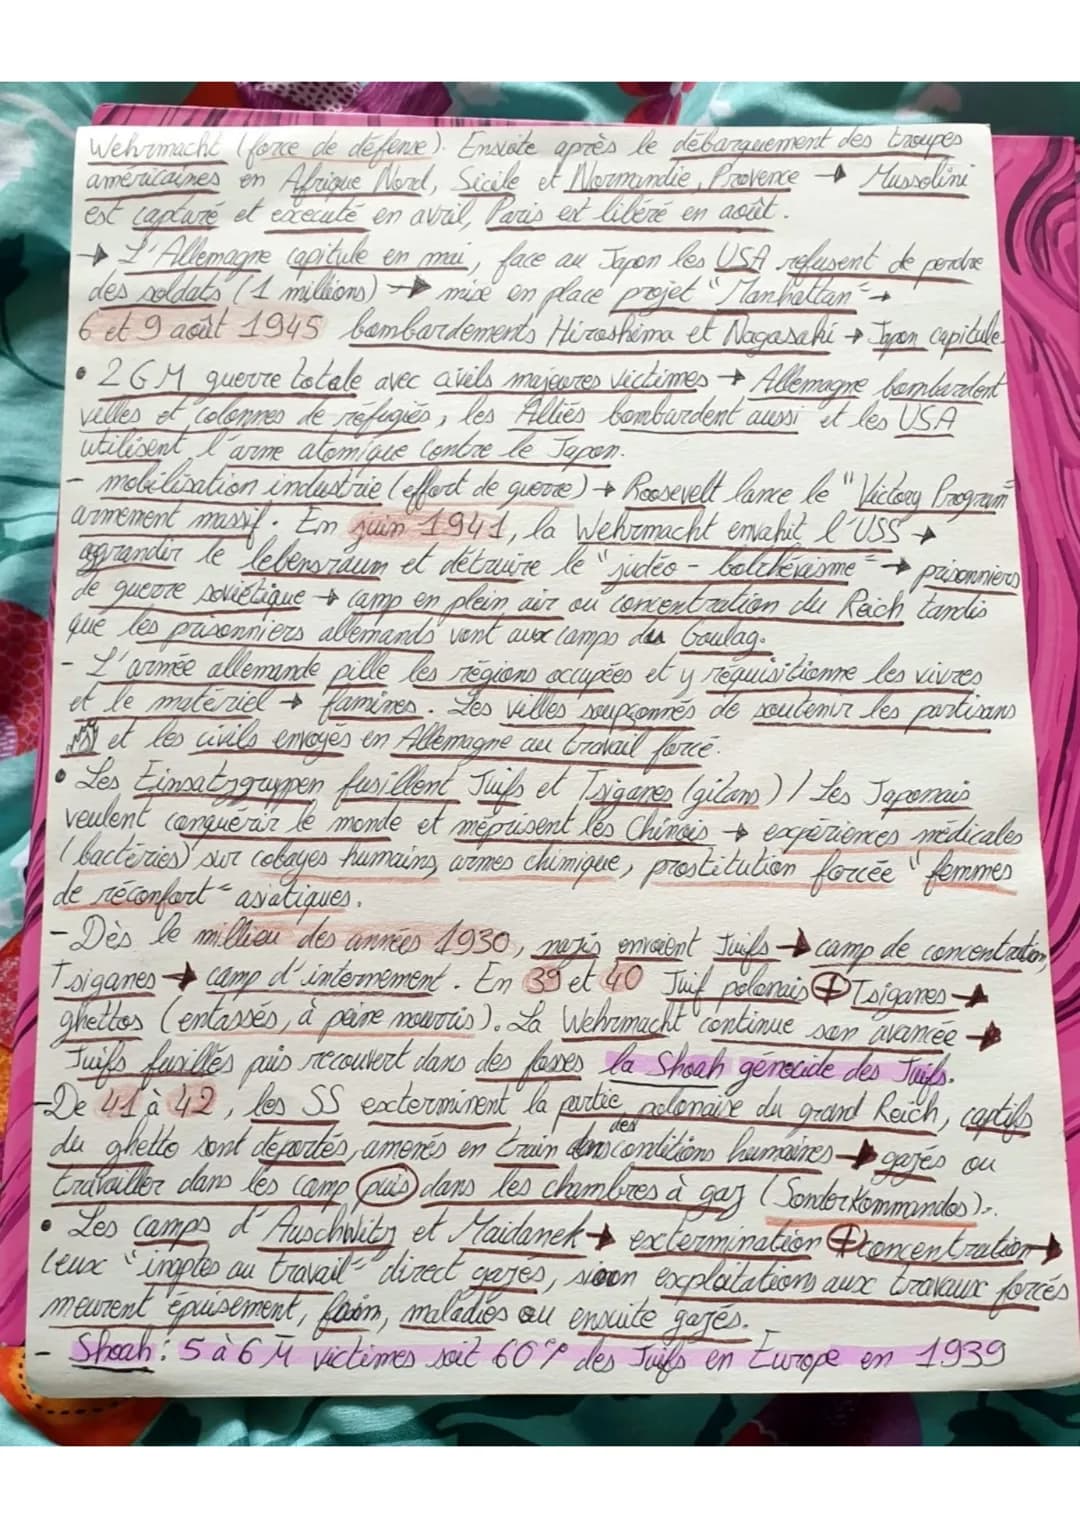 Wehrmacht (force de défense). Ensiote après le débarquement des troupes
américaines en Afrique Nord, Sicile et Normandie, Provence → Mussolini
est capturé et executé en avril, Paris est libéré en août.
→ L'Allemagne capitule en mai, face au Japon les USA refusent de perdre
des soldats (1 millions) → mise en place projet "Manhattan" →
6 et 9 août 1945 bombardements Hiroshima et Nagasaki → Japon capitule.
• 2GM guerre totale avec civils majeures victimes → Allemagne bombardent
villes et colonnes de réfugiés, les Alliés bombardent aussi et les USA
utilisent l'arme atomique contre le Japon.
- mobilisation industrie (effort de guerre) → Roosevelt lance le "Victory Program"
armement massif. En juin 1941, la Wehrmacht envahit l'USS →
aggrandir le lebensraum et détruire le "judéo-bolchévisme" → prisonniers
de guerre soviétique → camp en plein air ou concentration du Reich tandis
que les prisonniers allemands vont aux camps du Goulag.
- L'armée allemande pille les régions occupées et y réquisitionne les vivres
et le matériel → famines. Les villes soupçonnés de soutenir les partisans
et les civils envoyés en Allemagne au travail forcé.
• Les Einsatzgruppen fusillent Juifs et Tsiganes (gitans) / Les Japonais
veulent conquérir le monde et méprisent les Chinois → expériences médicales
(bactéries) sur cobayes humains, armes chimique, prostitution forcée "femmes
de réconfort" asiatiques.
- Dès le millieu des années 1930, nazis envoient Juifs → camp de concentration,
Tsiganes → camp d'internement. En 39 et 40 Juif polonais + Tsiganes →
ghettos (entassés, à peine nourris). La Wehrmacht continue son avancée →
Juifs fusillés puis recouvert dans des fosses la Shoah génocide des Juifs.
- De 41 à 42, les SS exterminent la partie polonaise du grand Reich, captifs
du ghetto sont déportés, amenés en train dans des conditions humaines → gazés ou
travailler dans les camp puis dans les chambres à gaz (Sonderkommandos).
• Les camps d'Auschwitz et Maidanek → extermination + concentration →
ceux "inaptes au travail" direct gazés, sinon exploitations aux travaux forcés
meurent épuisement, faim, maladies ou ensuite gazés.
- Shoah : 5 à 6 M victimes soit 60% des Juifs en Europe en 1939